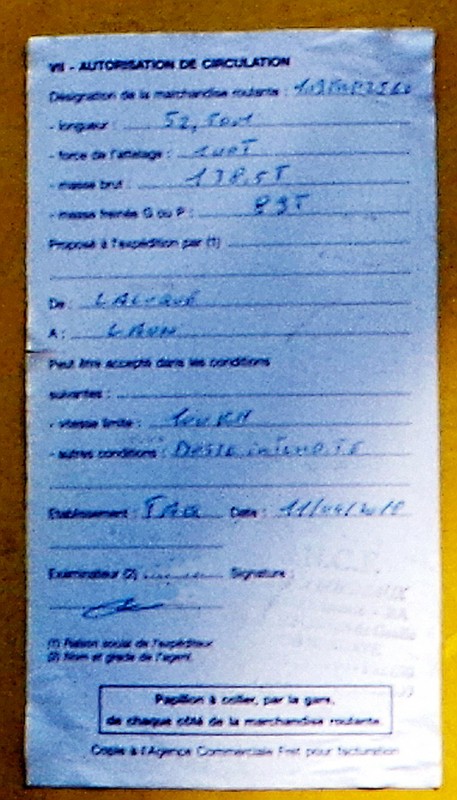 VII - AUTORISATION DE CIRCULATION
Désignation de la marchandise roulante :
- longueur : 52,50m
- force de l'attelage : 100T
- masse brut : 138,5T
- masse freinée G ou P : 89T
Proposé à l'expédition par (1)
De : LALUQUE
A : LAON
Peut être accepté dans les conditions
suivantes :
- vitesse limite : 100KH
- autres conditions : Bosse interdite
Etablissement : Date : 11/04/2018
Examinateur (2) Signature :
(1) Raison social de l'expéditeur
(2) Nom et grade de l'agent
Papillon à coller, par la gare,
de chaque côté de la marchandise roulante
Copie à l'Agence Commerciale Fret pour facturation